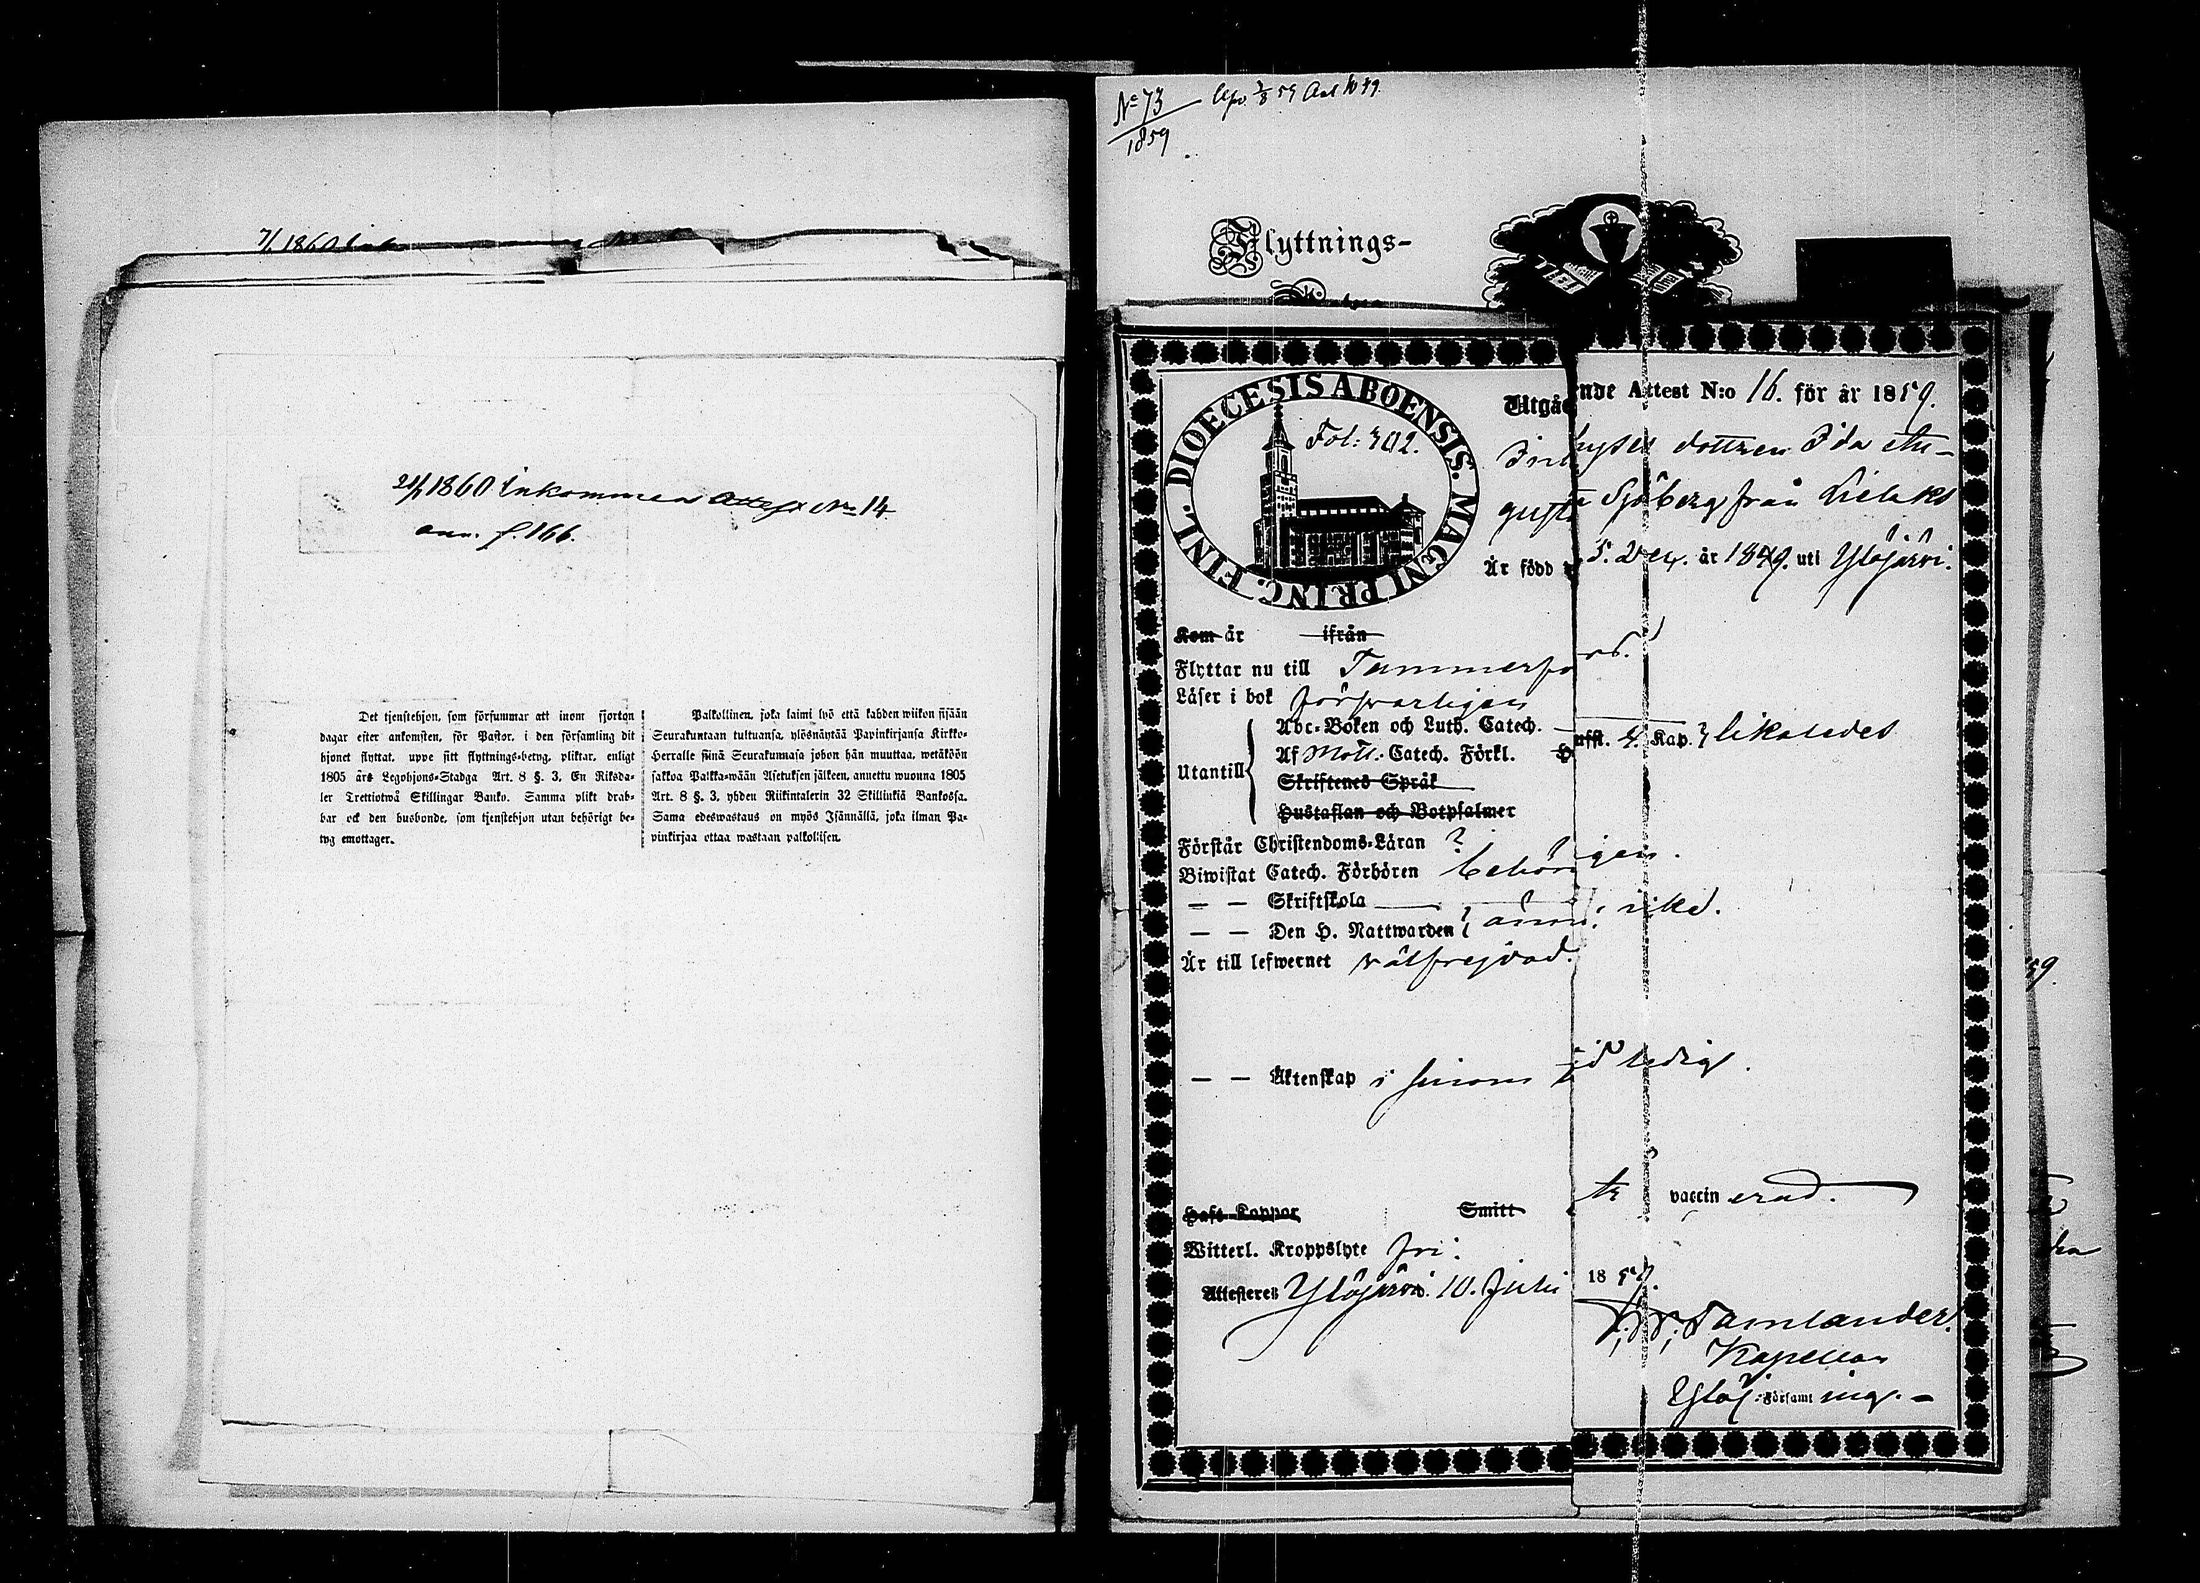 7/1 1860
21/1 1860 Inkommen Attest No 14
ann. f. 166.
Det tjenstehjon, som försummar att inom fjorton
dagar efter ankomsten, för Pastor, i den församling dit
hjonet flyttat, uppe sitt flyttnings-betyg, pliktar, enligt
1805 års Legohjons-Stadga Art. 8 §. 3, En Riksda-
ler Trettiotwå Skillingar Banko. Samma plikt drab-
bar ock den husbonde, som tjenstehjon utan behörigt be-
tyg emottager.
Palkollinen, joka laimi lyö että kahden wiikon sisään
Seurakuntaan tultuansa, ylösnäytää Papinkirjansa Kirkko-
Herralle siinä Seurakunnasa johon hän muuttaa, wetäköön
sakkoa Palkka-wään Asetuksen jälkeen, annettu wuonna 1805
Art. 8 §. 3, yhden Riikintalerin 32 Skillinkiä Bankossa.
Sama edeswastaus on myös Isännällä, joka ilman Pa-
pinkirjaa ottaa wastaan palkollisen.
No 73
1859
Flyttnings-
DIOECESIS ABOENSIS. MAGNI PRINC. FINL.
Fol: 302.
Utgående Attest N:o 16. för år 1859.
dottren Ida Au-
gusta Sjöberg från
Är född 5. år 1849. uti Ylöjärvi.
Kom år ifrån
Flyttar nu till Tammerfors.
Läser i bok försvarligen
Utantill Abc-Boken och Luth. Catech.
Af Moll. Catech. Förkl. Hufst. 4. Kap. likaledes
Skriftenes Språk
Hustaflan och Botpsalmer
Förstår Christendoms-Läran ?
Biwistat Catech. Förhören behörigen.
— — Skriftskola
— — Den H. Nattwarden
Är till lefwernet välfrejdad.
— — Äktenskap ledig.
Haft Koppor Smitt vaccinerad.
Witterl. Kroppslyte fri.
Attesterer Ylöjärvi. 10. Juli 1859.
Tamlander.
Kapellan
Ylöj: Församling. —